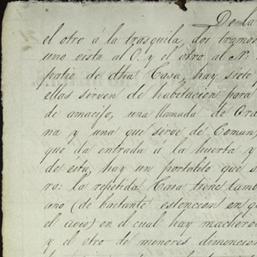 De la
el otro á la trasquila, dos tramos
uno vista al O. y el otro al N.
patio de dha Casa, hay siete
ellas sirven de habitacion para
de amacijo, una llamada de Gra
na y una que sirve de Comun,
que dá entrada á la huerta y
de esta, hay un portalito que s
ro: la repetida Casa tiene tamb
ano (de bastante estencion en q
el aseo) en el cual hay machero
y el otro de menores dimencion